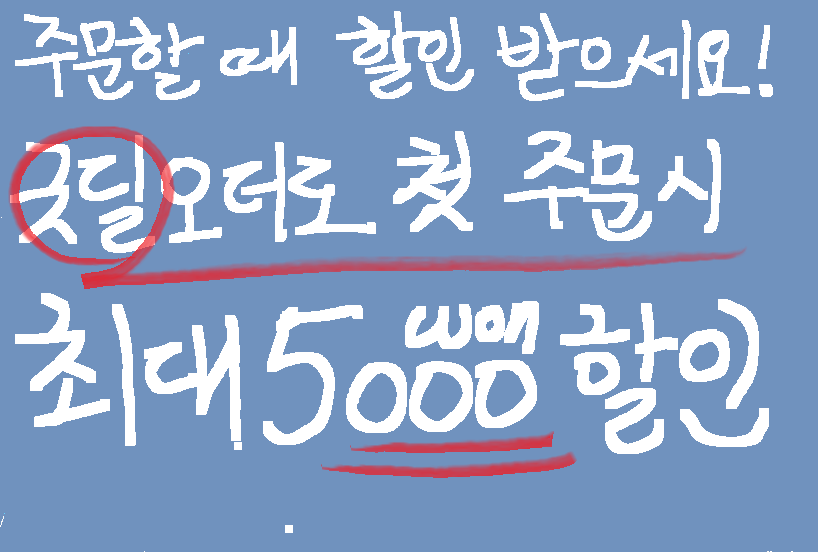 주문할 때 할인 받으세요!
굿딜오더로 첫 주문시
최대 5000 won 할인